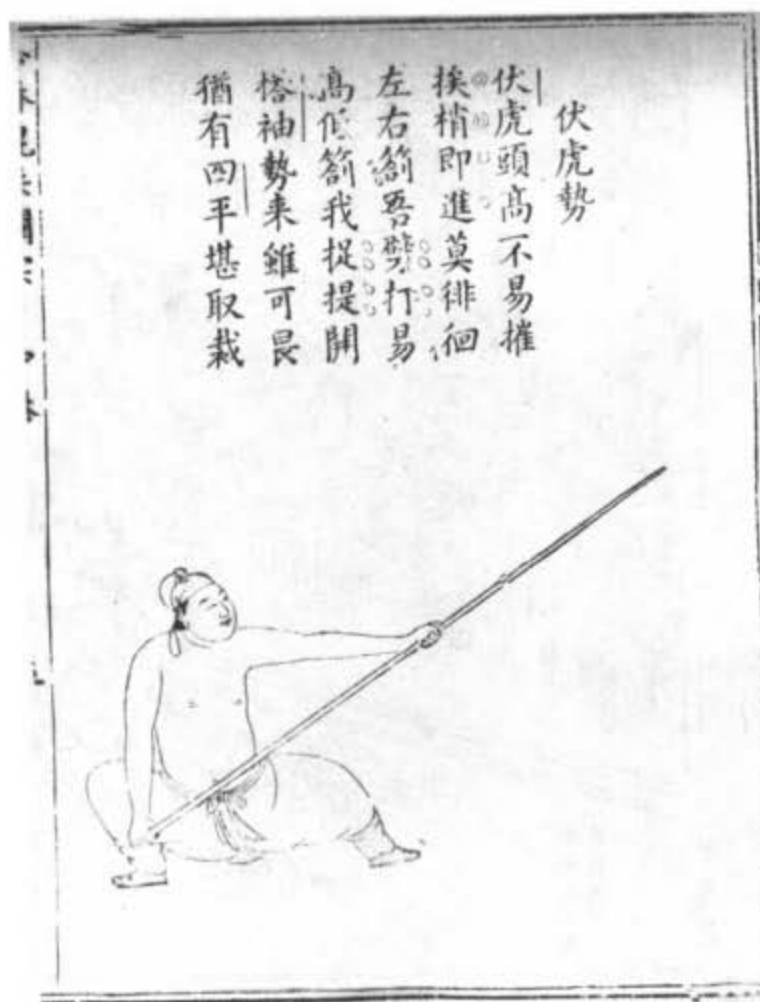 伏虎勢
伏虎頭高不易摧
挨梢即進莫徘徊
左右劄吾劈打易
高低劄我捉提開
搭袖勢来雖可畏
猶有四平堪取裁